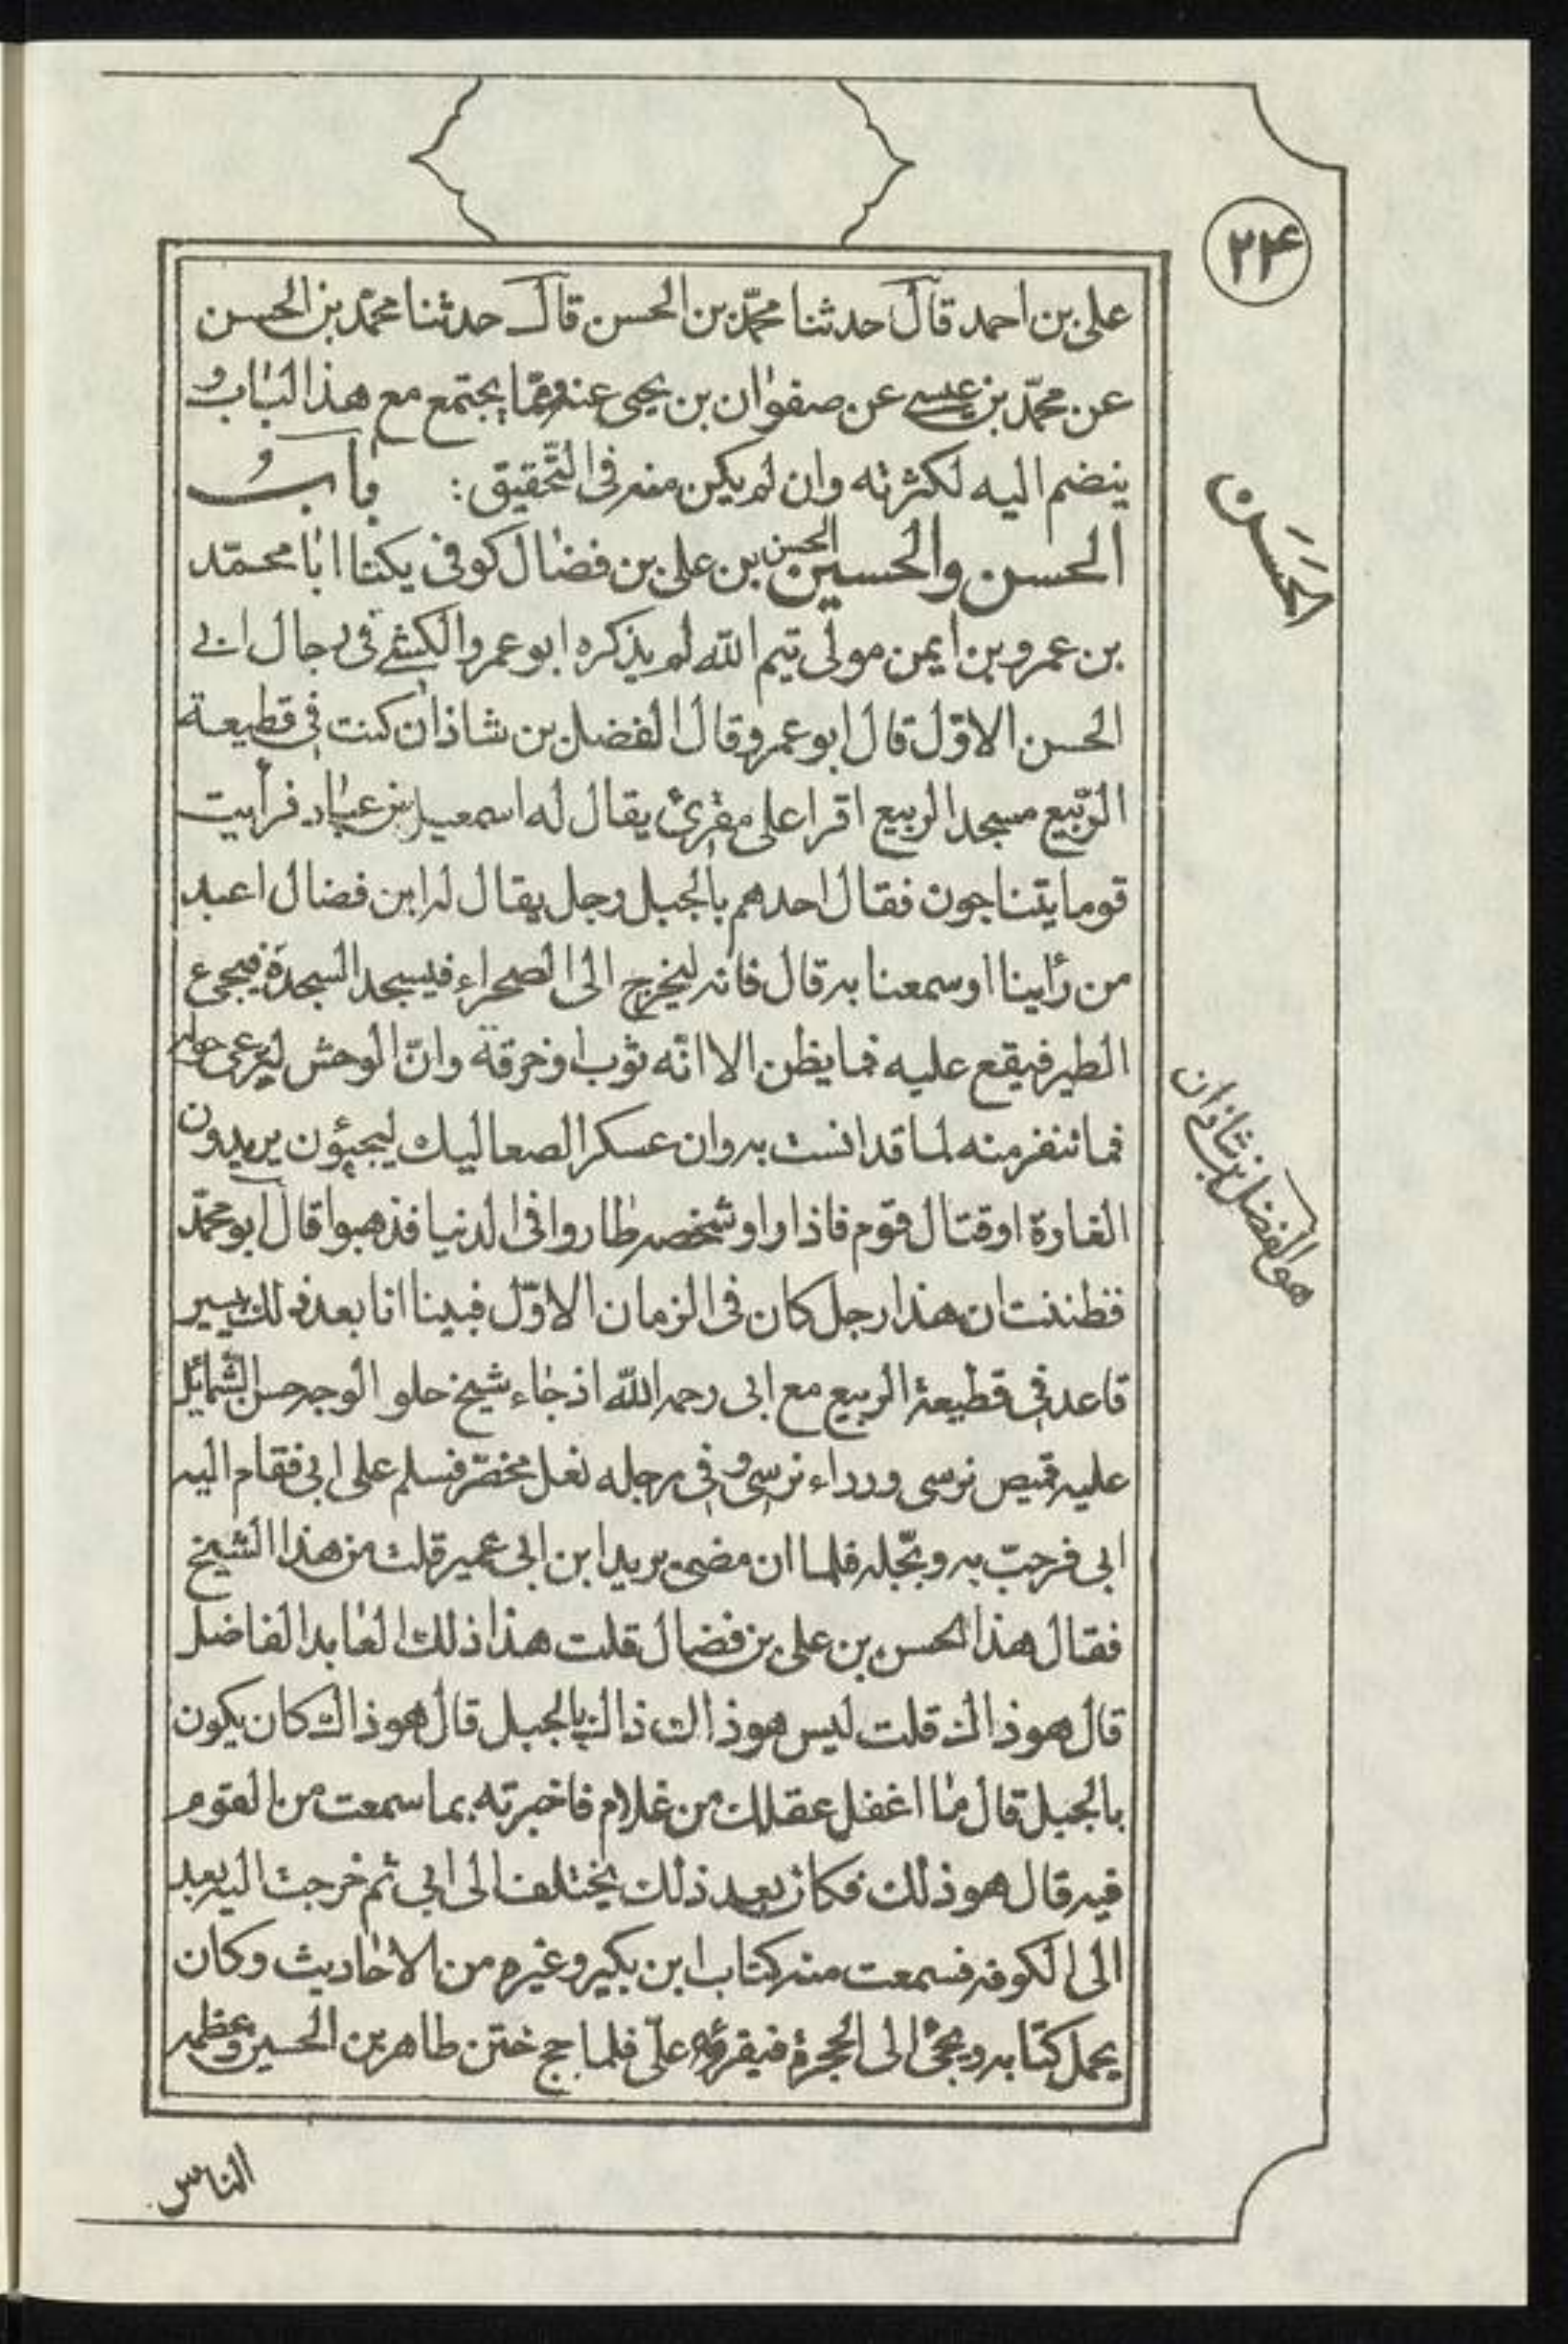 ۲۴
على بن احمد قال حدثنا محمّد بن الحسن قال حدثنا محمّد بن الحسن
عن محمّد بن عيسى عن صفوان بن يحيى عنه وممّا يجتمع مع هذا الباب و
ينضم اليه لكثرته وان لم يكن منه فى التّحقيق : بابُ
الحسن والحسين الحسن بن على بن فضال كوفى يكنّا ابا محمّد
بن عمرو بن ايمن مولى تيم الله لم يذكره ابو عمرو الكشى فى رجال ابى
الحسن الاوّل قال ابو عمرو قال الفضل بن شاذان كنت فى قطيعة
الرّبيع مسجد الربيع اقرا على مقرئ يقال له اسمعيل بن عباد فرأيت
قوما يتناجون فقال احدهم بالجبل رجل يقال له ابن فضال اعبد
من رأينا اوسمعنا به قال فانه ليخرج الى الصحراء فيسجد السجدة فيجىء
الطير فيقع عليه فما يظن الا انّه ثوب او خرقة وانّ الوحش ليرعى حوله
فما تنفر منه لما قد انست به وان عسكر الصعاليك ليجيؤن يريدون
الغارة او قتال قوم فاذا راوا شخصه طاروا فى الدنيا فذهبوا قال ابو محمّد
فظننت ان هذا رجل كان فى الزمان الاوّل فبينا انا بعد ذلك بيسير
قاعد فى قطيعة الربيع مع ابى رحمه الله اذ جاء شيخ حلو الوجه حسن الشّمائل
عليه قميص نرسى ورداء نرسى وفى رجله نعل مخصّر فسلم على ابى فقام اليه
ابى فرحّب به وبجّله فلما ان مضى يريد ابن ابى عمير قلت من هذا الشيخ
فقال هذا الحسن بن على بن فضال قلت هذا ذلك العابد الفاضل
قال هو ذاك قلت ليس هو ذاك ذاك بالجبل قال هو ذاك كان يكون
بالجبل قال ما اغفل عقلك من غلام فاخبرته بما سمعت من القوم
فيه قال هو ذلك فكان بعد ذلك يختلف الى ابى ثم خرجت اليه بعد
الى الكوفه فسمعت منه كتاب ابن بكير وغيره من الاحاديث وكان
يحمل كتابه ويجئ الى الحجرة فيقرؤه علىّ فلما حج ختن طاهر بن الحسين وعظمه
الحَسَن
هو الفضل بن شاذان
الناس